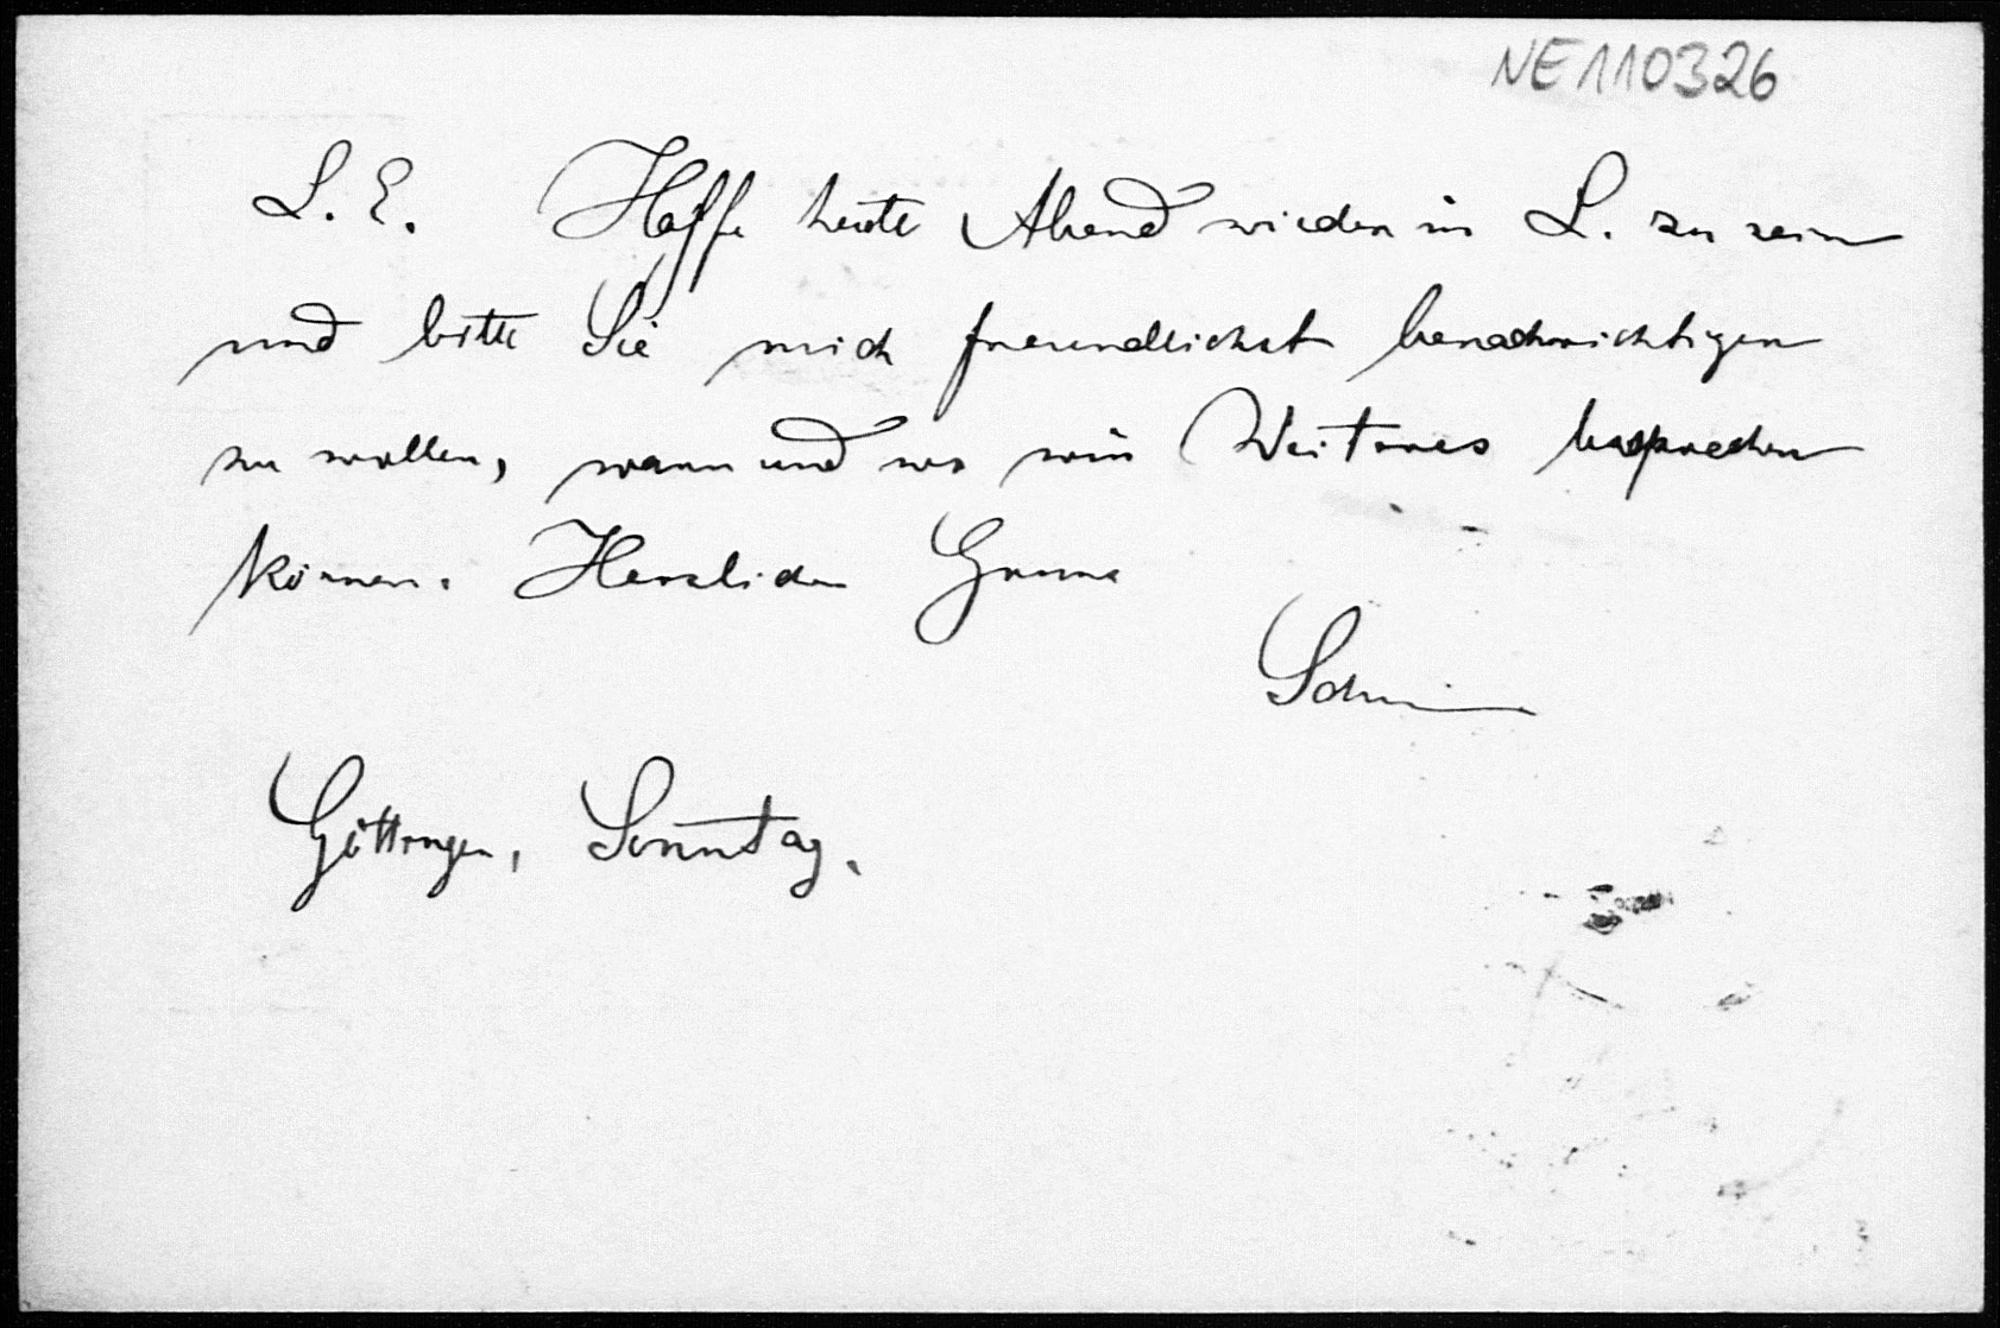 NE110326
L. E. Hoffe heute Abend wieder in L. zu sein
und bitte Sie mich freundlichst benachrichtigen
zu wollen, wann und wo wir Weiteres besprechen
können. Herzlichen Gruss
Göttingen, Sonntag.